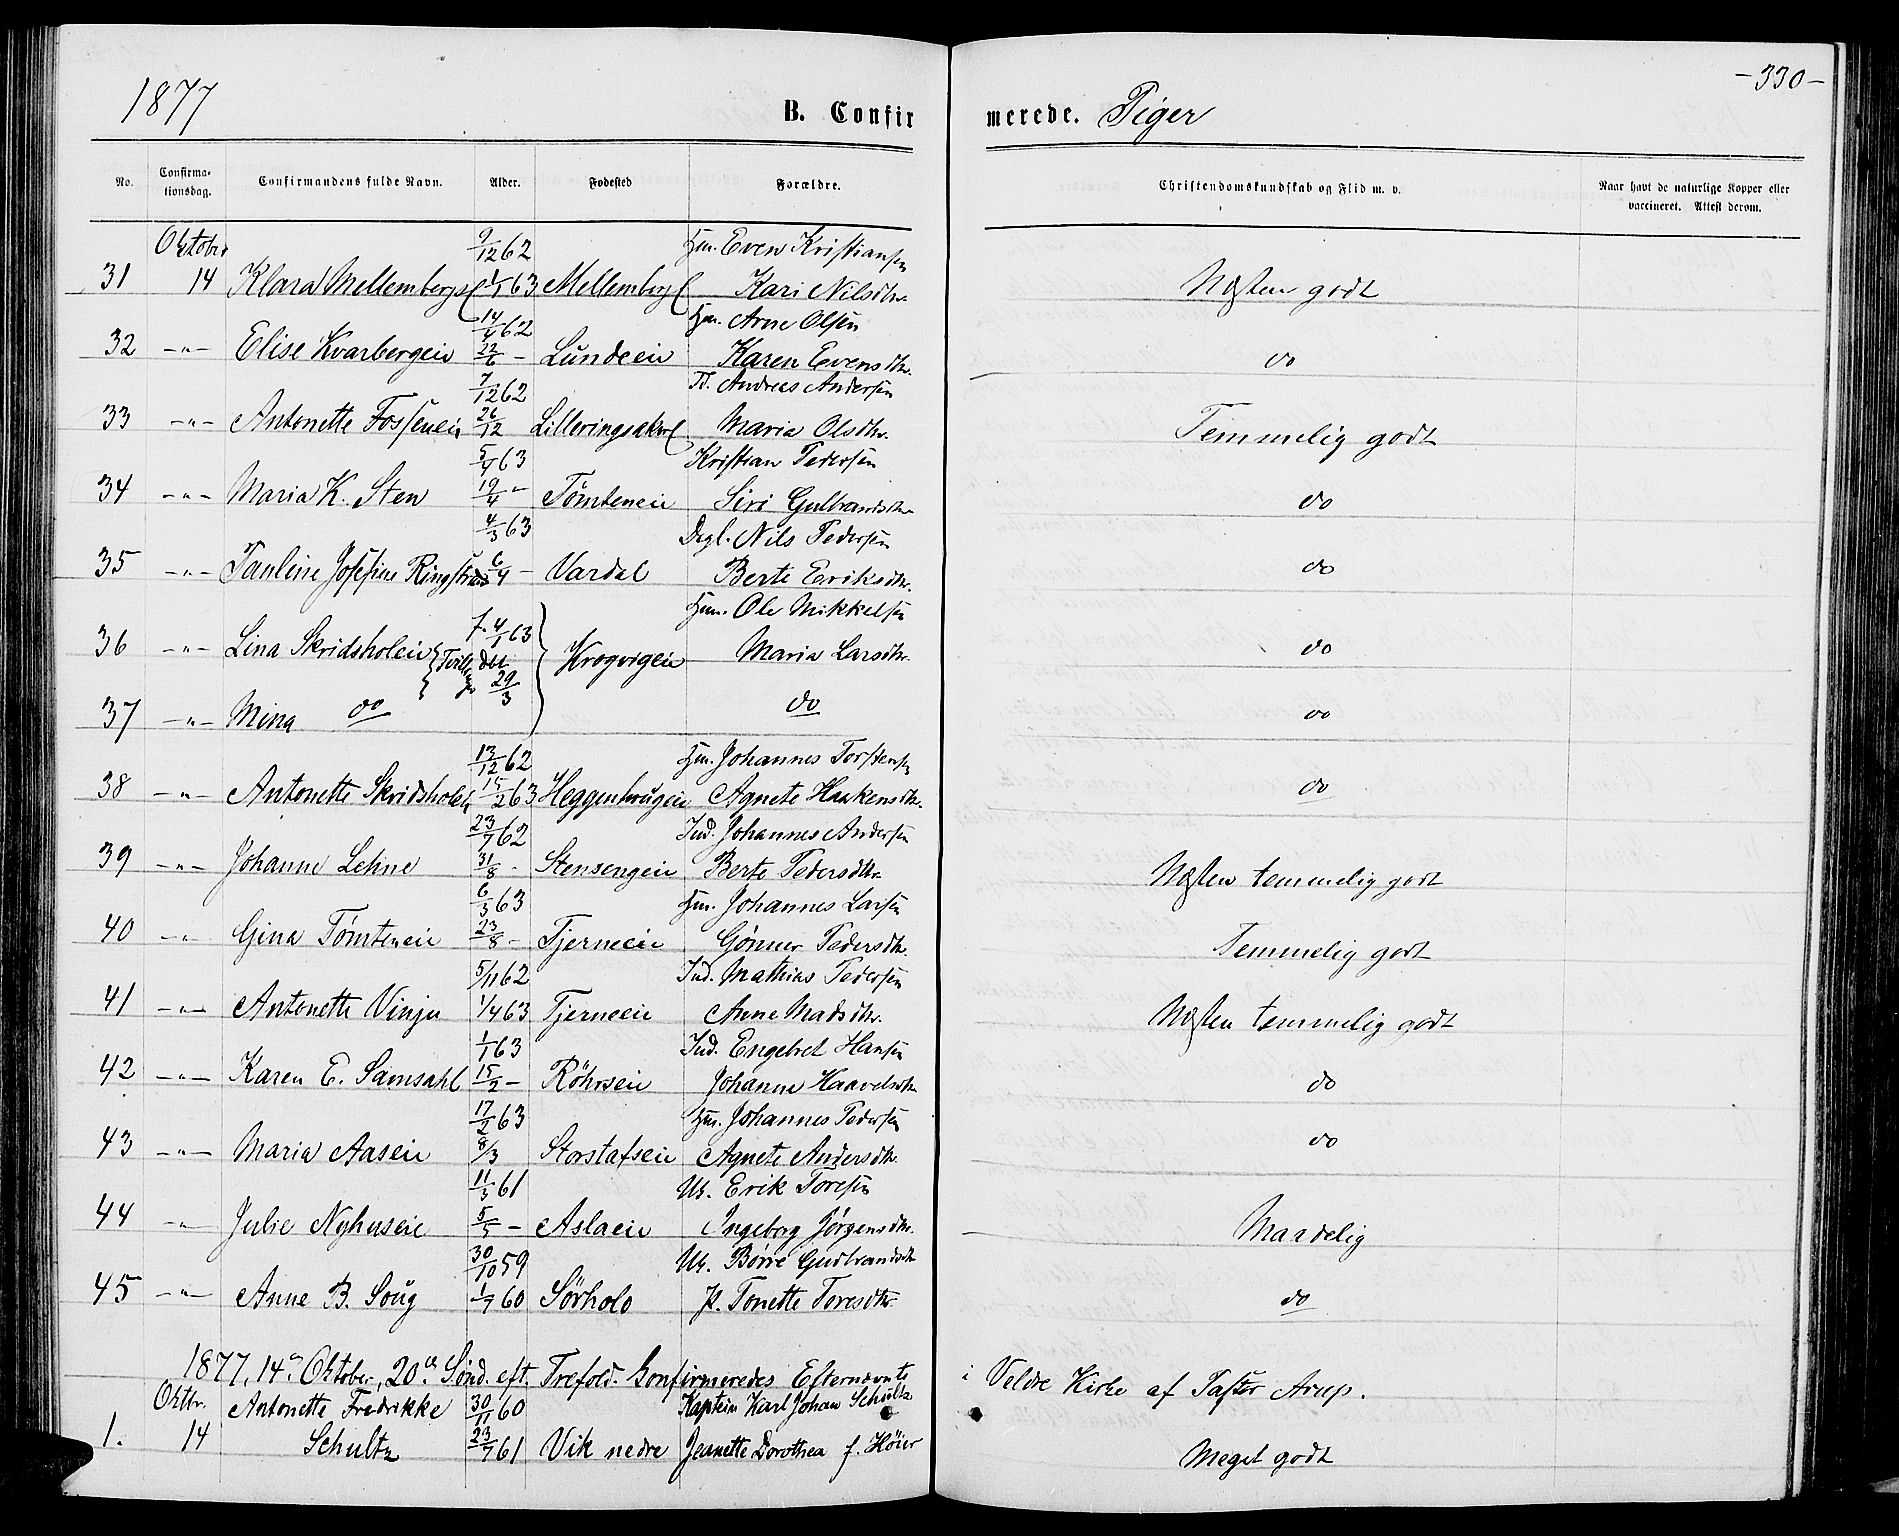 1877
B. Confirmerede. Piger
-330-
No. Confirmationsdag. Confirmandens fulde Navn. Alder. Fødested Forældre. Christendomskundskab og Flid m. v. Naar havt de naturlige Kopper eller vaccineret. Attest derom.
Oktober 9/12 62 Hm. Even Kristiansen
31 14 Klara Mellembergs 1/1 63 Mellemberg Kari Nilsdtr. Næsten godt
14/4 62 Hm. Arne Olsen
32 -"- Elise Kvarbergeie 22/6 - Lundeeie Karen Evensdtr. do
7/12 62 Td. Andreas Andersen
33 -"- Antonette Fosseneie 26/12 Lilleringsaker Maria Olsdtr. Temmelig godt
63 Kristian Pedersen
34 -"- Maria K. Sten 19/4 " Tömteneie Siri Gulbrandsdtr. do
4/3 63 Dagl. Nils Pedersen
35 -"- Pauline Josefine Ringstrand 6/4 - Vardal Berte Eriksdtr. do
f. 4/1 63 Hm. Ole Mikkelsen
36 -"- Lina Skridsholeie { Tvillinger döt } Krogvigeie Maria Larsdtr. do
29/3
37 -"- Mina do do do
13/12 62 Hm. Johannes Torstensen
38 -"- Antonette Skridsholen 15/2 63 Heggenhaugeie Agnete Haakensdtr. do
23/7 62 Ind. Johannes Andersen
39 -"- Johanne Lehne 31/8 - Stensengeie Berte Pedersdtr. Næsten temmelig godt
6/3 63 Hm. Johannes Larsen
40 -"- Gina Tømteneie 23/8 - Tjerneeie Gönner Pedersdtr. Temmelig godt
5/11 62 Ind. Mathias Pedersen
41 -"- Antonette Vinju 1/4 63 Tjerneeie Anne Madsdtr. Næsten temmelig godt
1/1 63 Ind. Engebret Hansen
42 -"- Karen E. Samsahl 15/2 - Röhrseie Johanne Haavelsdtr. do
17/2 63 Hm. Johannes Pedersen
43 -"- Maria Aaseie 8/3 Storstafseie Agnete Andersdtr. do
11/3 61 Uk. Erik Toresen
44 -"- Julie Nyhuseie 5/5 - Aslaeie Ingeborg Jørgensdtr. Maadelig
30/10 59 Uk. Börre Gudbrandsdtr
45 -"- Anne B. Soug 1/7 60 Sörholo P. Tonette Toresdtr. do
1877, 14de Oktober, 20de Sönd. eft. Trefold. Confirmeredes Efternævnte i Veldre Kirke af Pastor Arup.
Oktbr. Antonette Fredrikke 30/11 60 Kaptein Karl Johan Schultz
1. 14 Schultz 23/7 61 Vik nedre Jeanette Dorothea f. Höier Meget godt